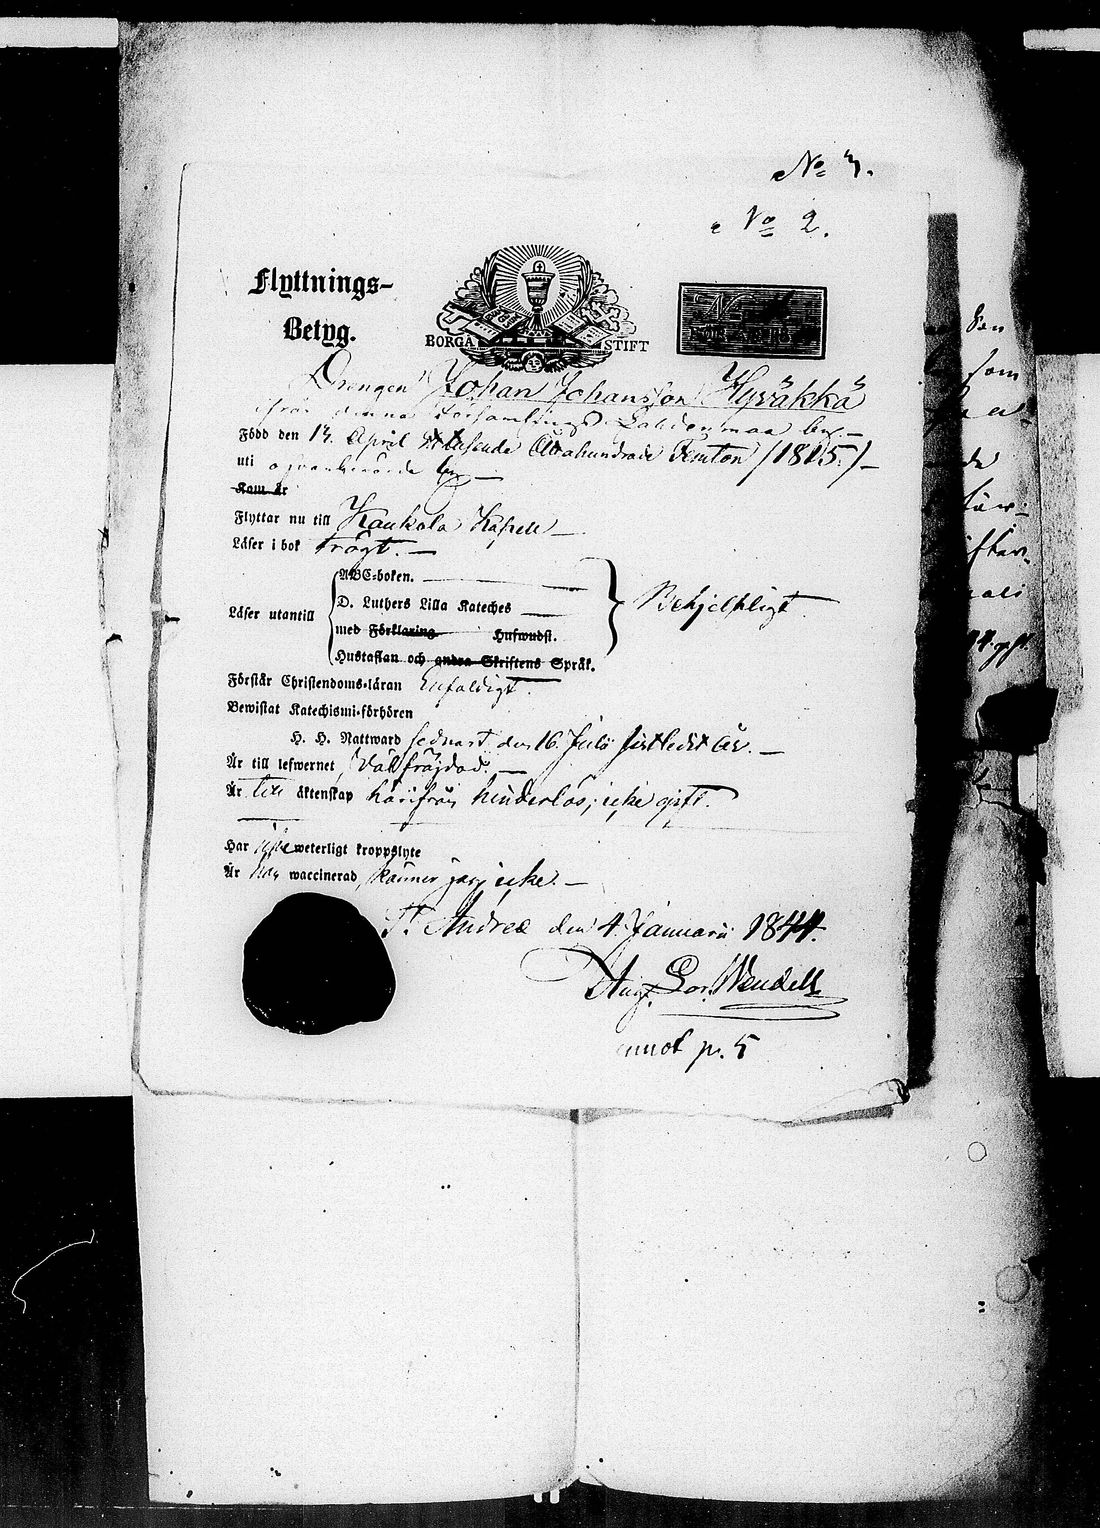 No 3.
No 2.
Flyttnings-
Betyg.
BORGÅ STIFT
Drengen Johan Johansson Hyväkkä
ifrån denna Församlings by.
Född den 13. April Ettusende Åttahundrade Femton (1815.)
uti ofvanberörde by
Kom år
Flyttar nu till Kaukola Kapell
Läser i bok trögt.
ABC-boken.
D. Luthers Lilla Kateches
Läser utantill Behjelpligt
med Förklaring Hufwudst.
Hustaflan och andra Skriftens Språk.
Förstår Christendoms-läran Enfaldigt.
Bewistat Katechismi-förhören
H. H. Nattward sednast den 16. Julii sistledit år.
Är till lefwernet Välfräjdad.
Är till äktenskap härifrån hinderlös; icke gift.
Har weterligt kroppslyte
Är waccinerad, känner jag icke.
St Andreæ den 4. Januarii 1844.
Aug. Lor. Wendell
annot p. 5
den
som